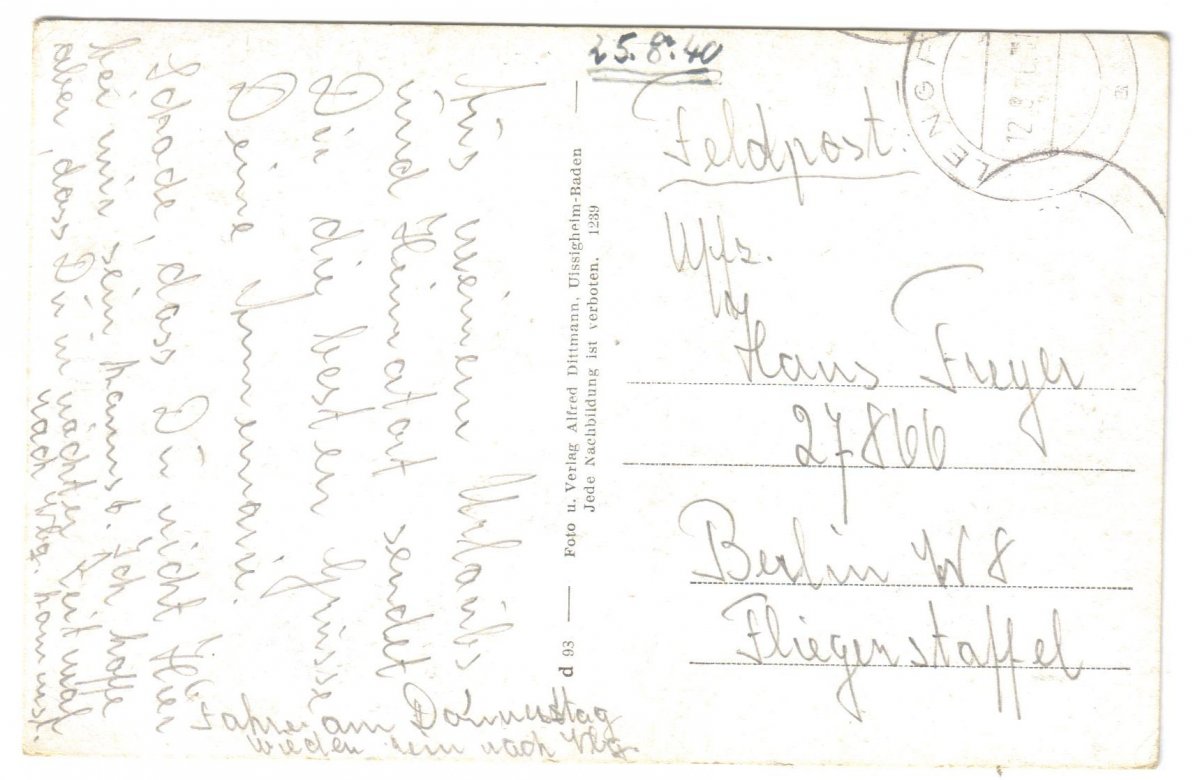 25.8.40
Feldpost.
Uffz.
Hans Freyer
27866
Berlin W 8
Fliegerstaffel
LENGF
12.8.
Foto u. Verlag Alfred Dittmann, Uissigheim-Baden
Jede Nachbildung ist verboten. 1239
d 93
Aus meinem Urlaubs
und Heimatort sendet
Dir die besten Grüsse
Deine Annemarie.
Schade, dass Du nicht hier
bei mir sein kannst. Ich hoffe
aber, dass Du in nächster Zeit mal
nach Nbg. kommst.
Fahre am Donnerstag
wieder heim nach Nbg.